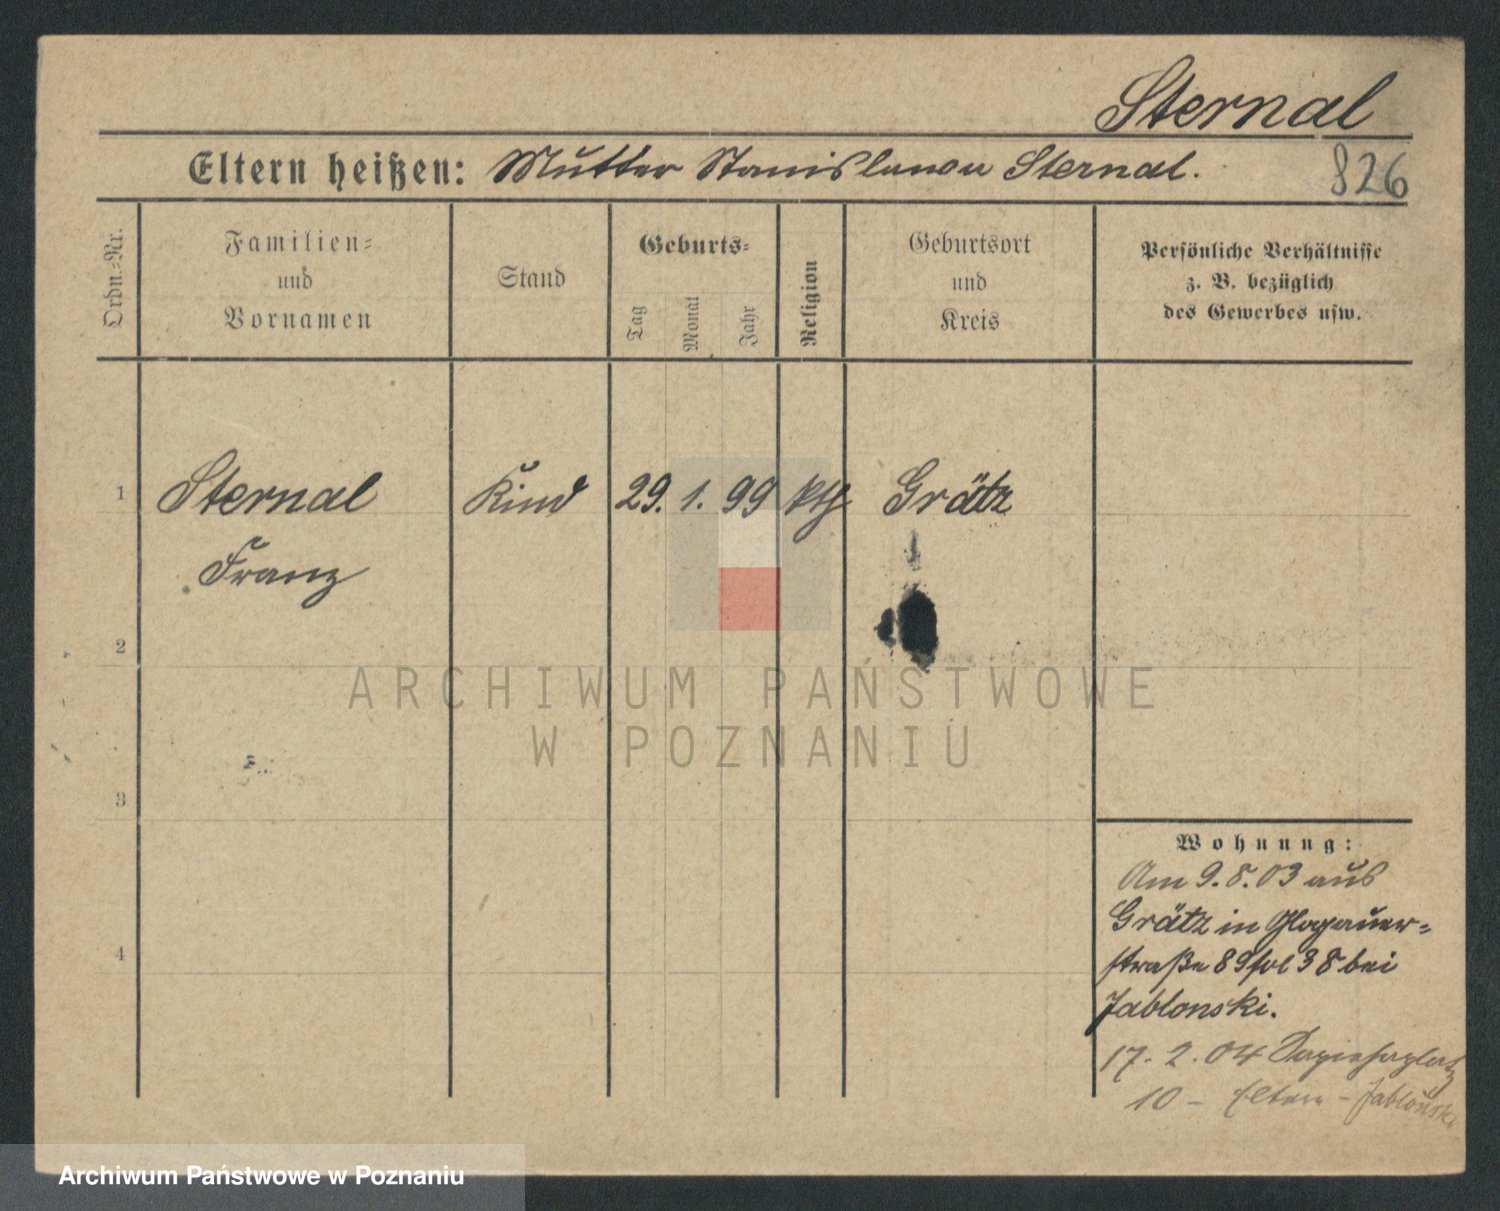 Sternal
Eltern heißen: Mutter Stanislawa Sternal.
826
Ordn.-Nr.
Familien-
und
Vornamen
Stand
Geburts-
Tag
Monat
Jahr
Religion
Geburtsort
und
Kreis
Persönliche Verhältnisse
z. B. bezüglich
des Gewerbes usw.
1 Sternal Kind 29. 1. 99 kth Grätz
Franz
2
3
4
Wohnung:
Am 9.8.03 aus
Grätz in Glogauer-
straße 89 fol 38 bei
Jablonski.
17. 2. 04 Sapiehaplatz
10 - Eltern - Jablonski
ARCHIWUM PAŃSTWOWE
W POZNANIU
Archiwum Państwowe w Poznaniu